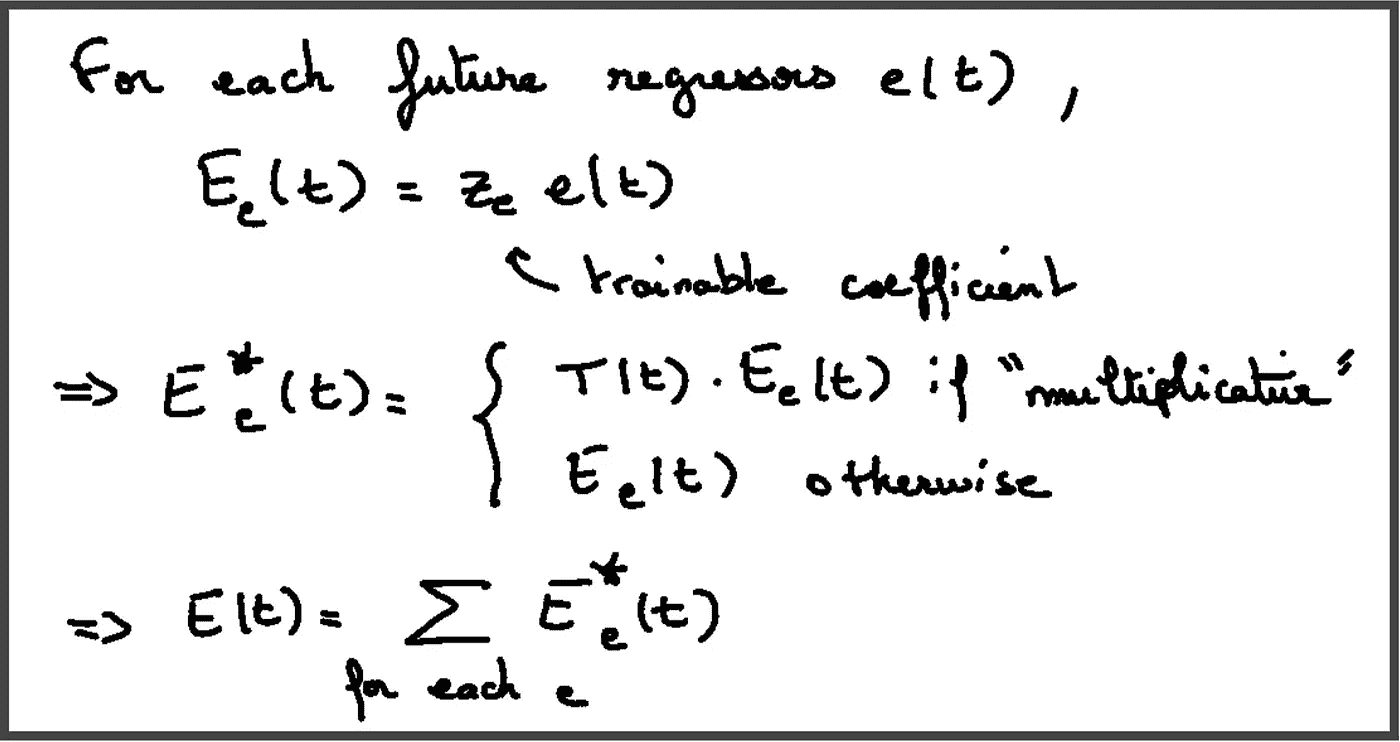 For each future regressors e(t),
E_e(t) = z_e e(t)
↖ trainable coefficient
=> E*_e(t) = { T(t) . E_e(t) if "multiplicative"
E_e(t) otherwise
=> E(t) = Σ E*_e(t)
for each e